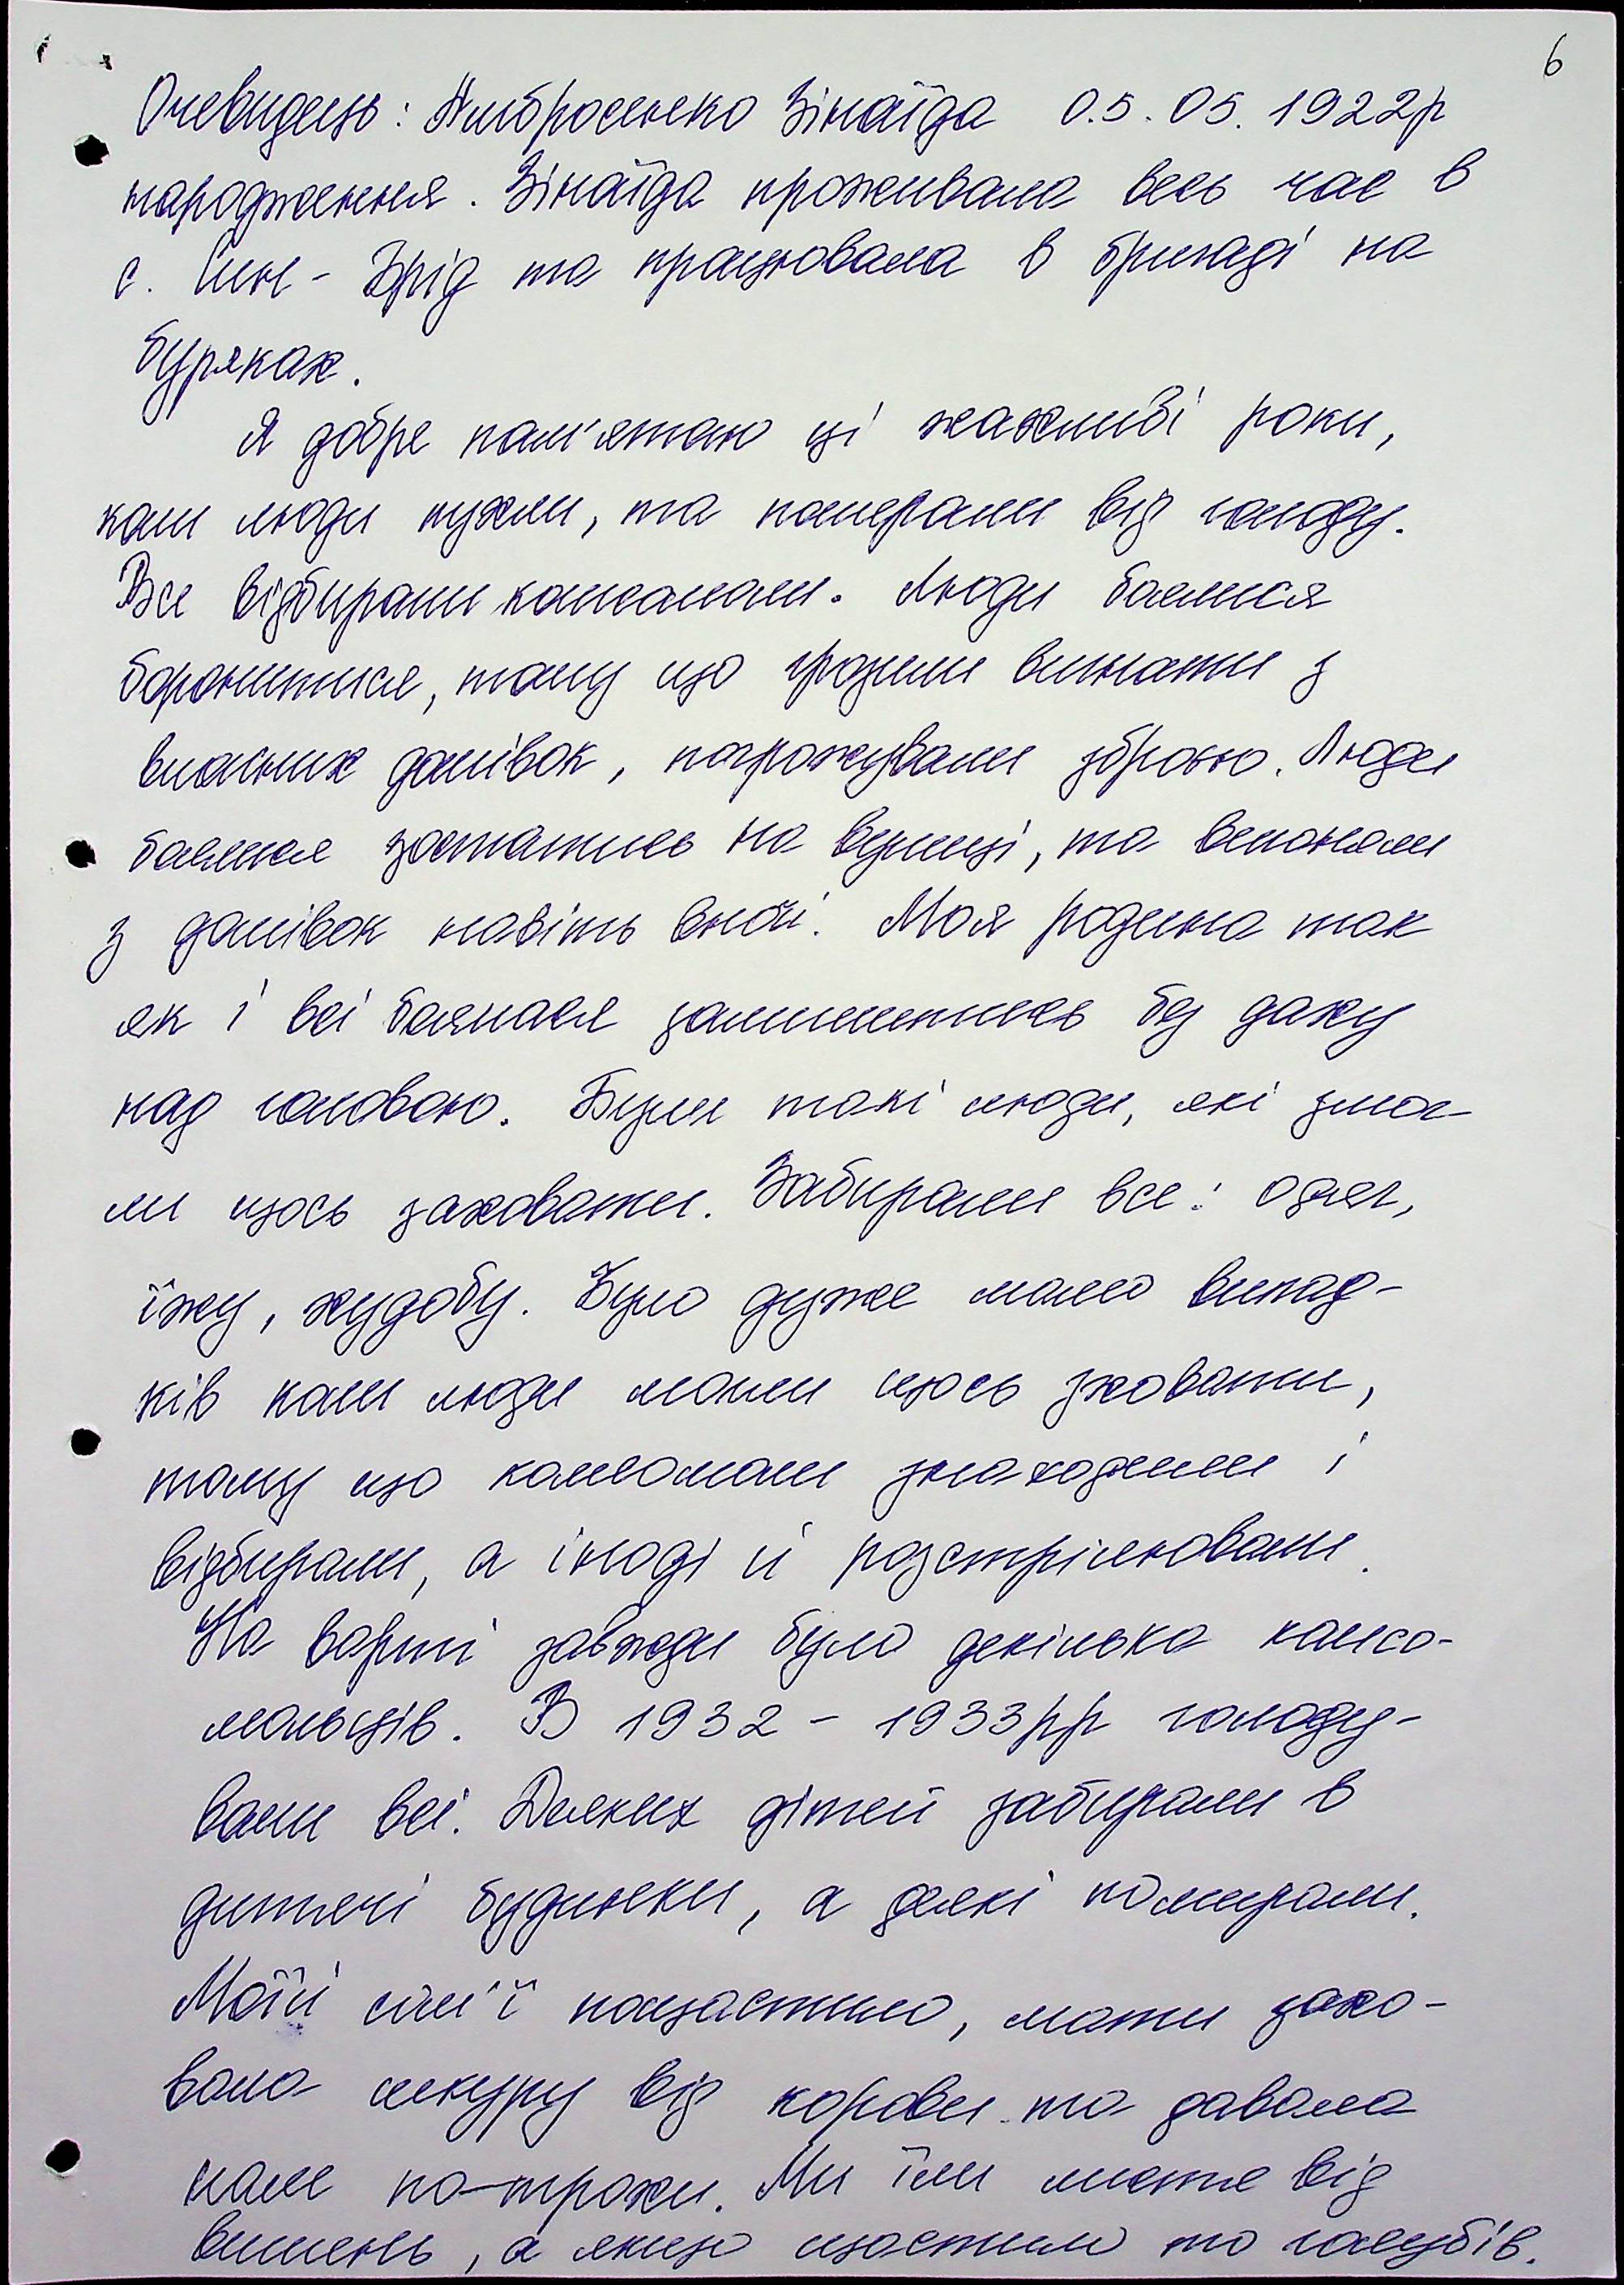 6
Очевидець: Амбросенко Зінаїда 0.5. 05. 1922р
народження. Зінаїда проживала весь час в
с. Син - Брід та працювала в бригаді на
буряках.
Я добре пам'ятаю ці жахливі роки,
коли люди пухли, та помирали від голоду.
Все відбирали комсомоли. Люди боялися
боронитися, тому що грозили вигнати з
власних домівок, погрожували зброєю. Люди
боялися зостатись на вулиці, та виганяли
з домівок навіть вночі. Моя родина так
як і всі боялася залишитись без даху
над головою. Були такі люди, які змог-
ли щось заховати. Забирали все: одяг,
їжу, худобу. Було дуже мало випад-
ків коли люди могли щось зховати,
тому що комсомоли знаходили і
відбирали, а іноді й розстрілювали.
На варті завжди було декілька комсо-
мольців. В 1932 - 1933рр голоду-
вали всі. Деяких дітей забирали в
дитячі будинки, а деякі помирали.
Моїй сім'ї пощастило, мати захо-
вала шкуру від корови та давала
нам по-трохи. Ми їли листя від
вишень, а якщо щастило то голубів.